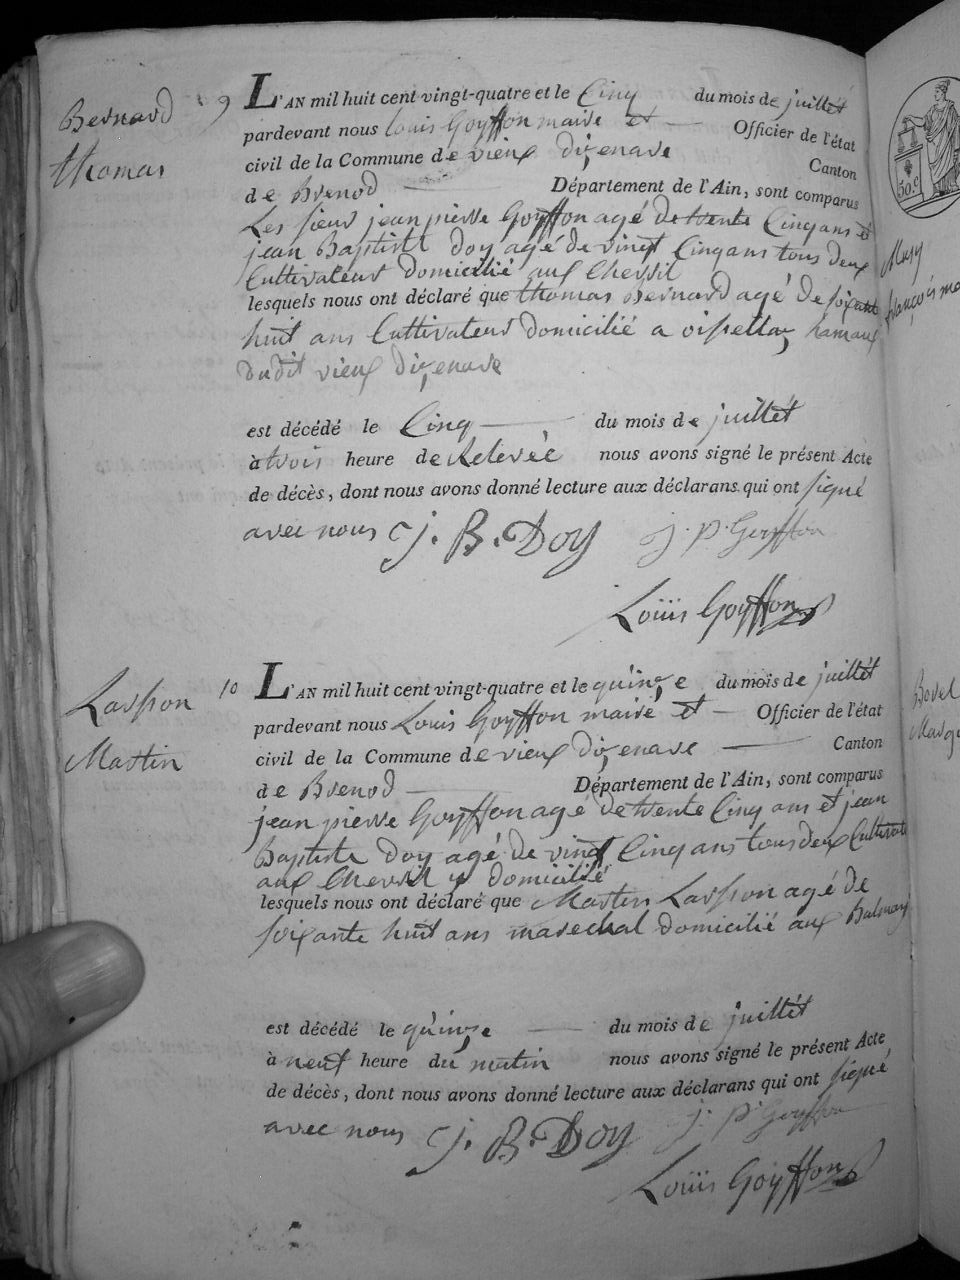 Bernard
thomas
9
L'AN mil huit cent vingt-quatre et le Cinq du mois de juillét
pardevant nous Louis Goyffon maire et — Officier de l'état
civil de la Commune de vieux dizenave Canton
de Brenod — Département de l'Ain, sont comparus
Les sieur jean pierre Goyffon agé de trente Cinq ans et
jean Baptiste Doy agé de vingt Cinq ans tous deux
Cultivateur domicilié aux Chevril
lesquels nous ont déclaré que thomas Bernard agé de soixante
huit ans Cultivateur domicilié a hamaux
dudit vieux dizenave
est décédé le Cinq — du mois de juillét
à trois heure de Relevéé nous avons signé le présent Acte
de décès, dont nous avons donné lecture aux déclarans qui ont signé
avec nous J. B. Doy j. p. Goyffon
Louis Goyffon
Lasson
Martin
10
L'AN mil huit cent vingt-quatre et le quinze du mois de juillét
pardevant nous Louis Goyffon maire et — Officier de l'état
civil de la Commune de vieux dizenave — Canton
de Brenod — Département de l'Ain, sont comparus
jean pierre Goyffon agé de trente Cinq ans et jean
Baptiste Doy agé de vingt Cinq ans tous deux Cultivate
aux Chevril y domicilié
lesquels nous ont déclaré que Martin Lasson agé de
soixante huit ans marechal domicilié aux Balmay
est décédé le quinze — du mois de juillét
à neuf heure du matin nous avons signé le présent Acte
de décès, dont nous avons donné lecture aux déclarans qui ont signé
avec nous J. B. Doy j. p. Goyffon
Louis Goyffon
50.c
françois